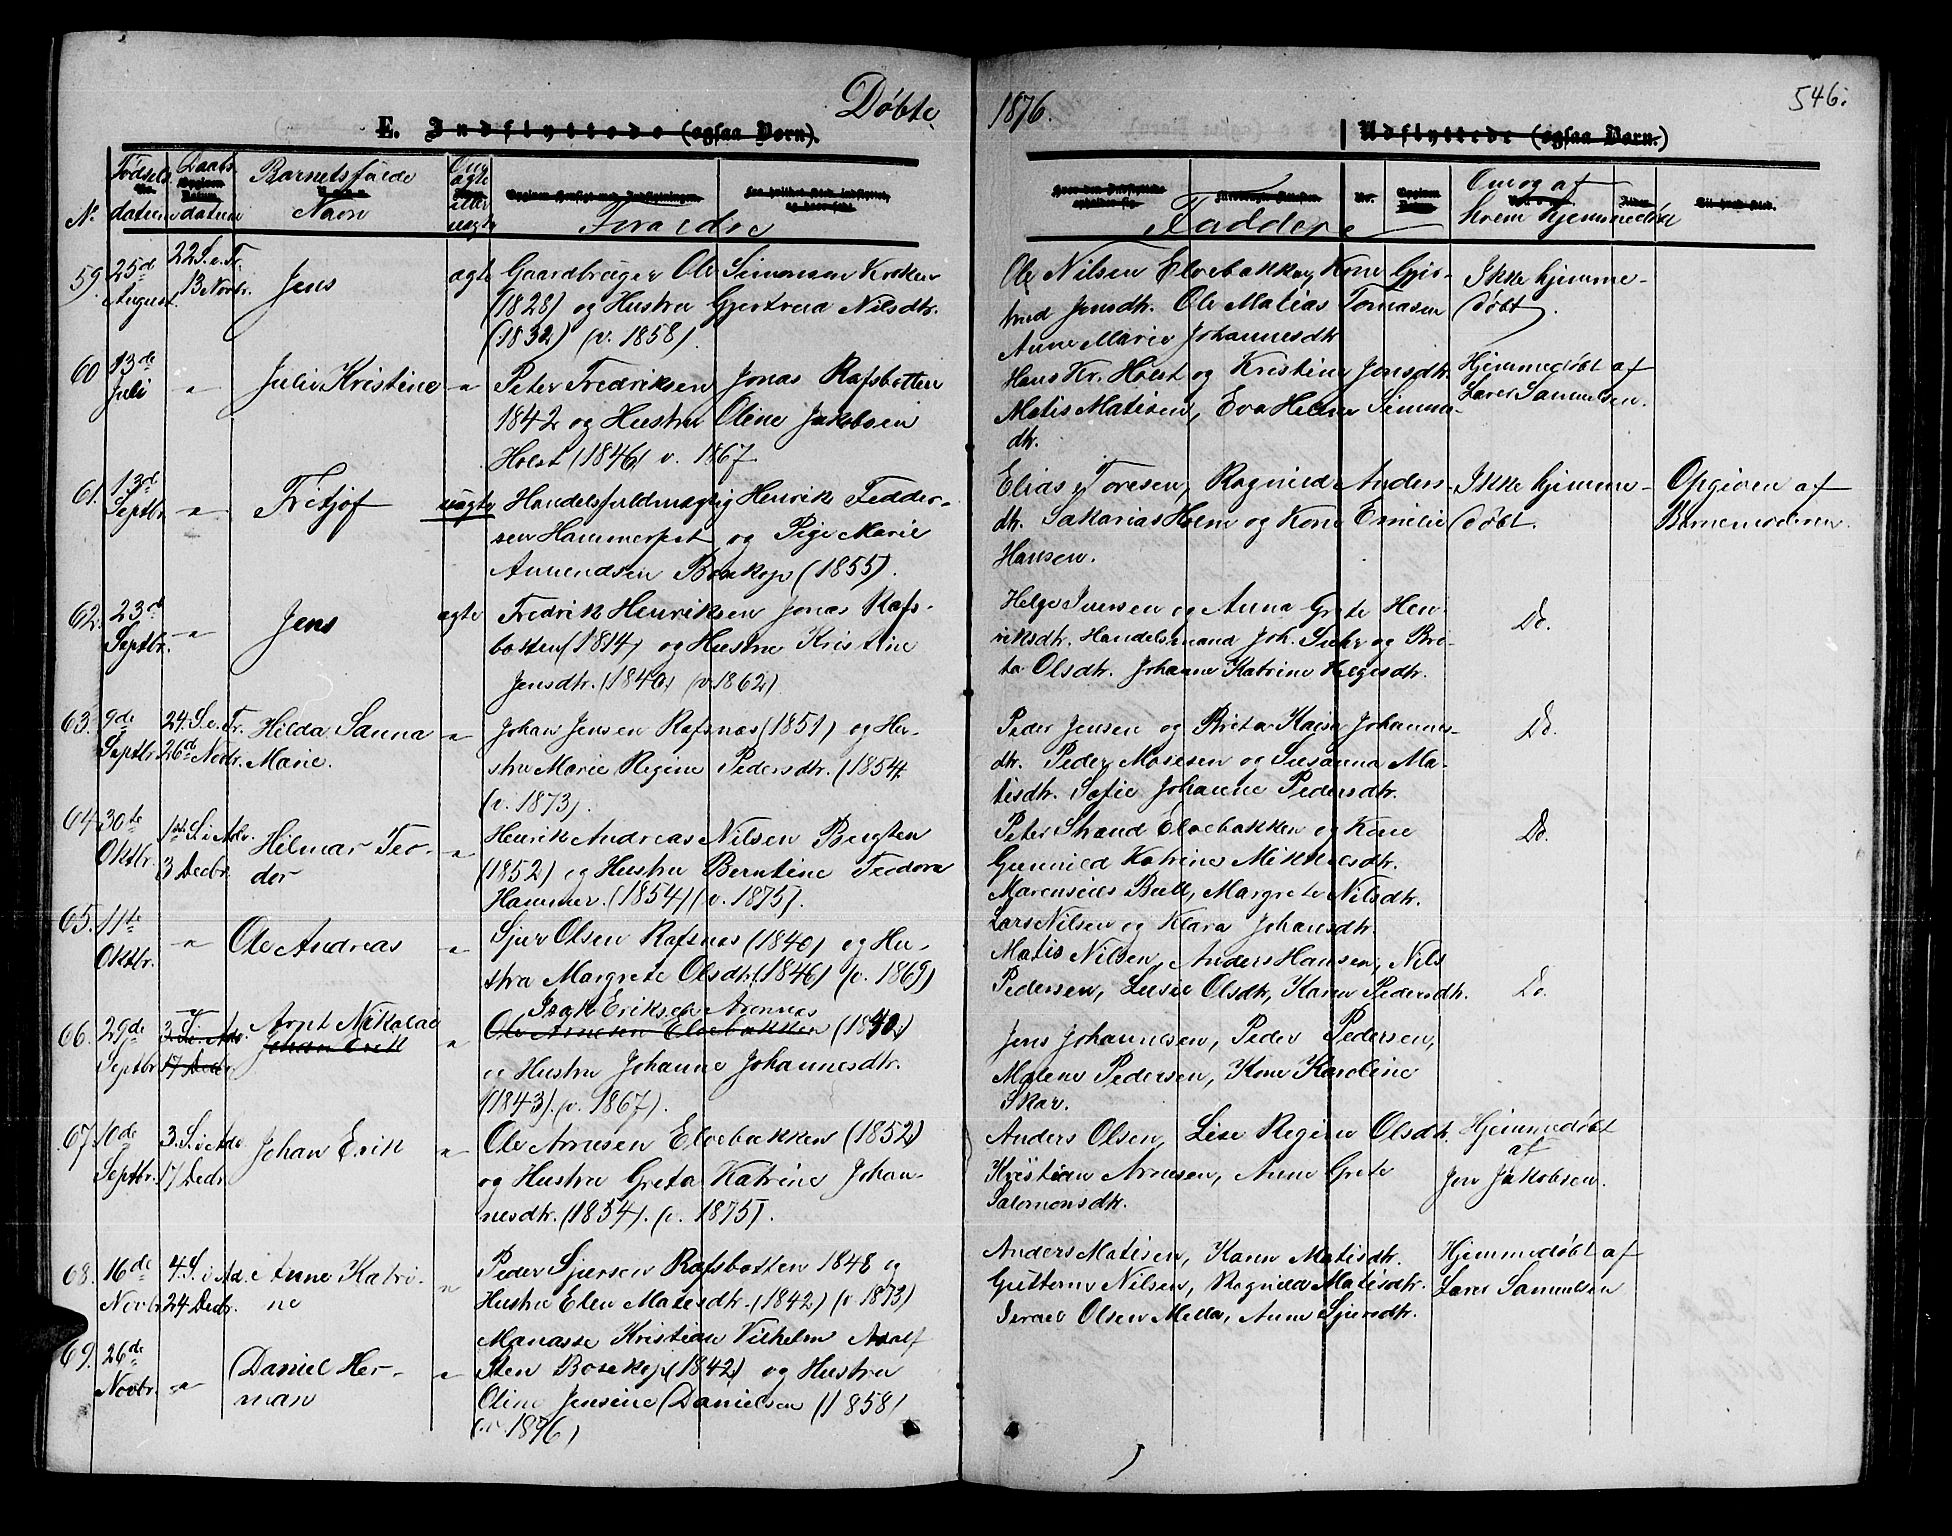 Døbte 1876. 546.
E. Indflyttede (ogsaa Børn). Udflyttede (ogsaa Børn.)
No Fødsels datum Daabs datum Barnets fulde Navn Om ægte eller uægte Forældre Faddere Om og af hvem hjemmedøbt
59. 25de August. 22 S. e. Tr. 13 Novbr. Jens ægte Gaardbruger Ole Simonsen Kroken
(1828) og Hustru Gjertrud Nilsdtr.
(1832) (v. 1858).
Ole Nilsen Elvebakken, Kone Gjer-
trud Jensdtr. Ole Matias Tomasen
Anne Marie Johannesdtr
Ikke hjemme-
døbt.
60 13de Juli " Julie Kristine " Peter Fredriksen Jonas Rafsbotten
1842 og Hustru Oline Jakobsen
Holst (1846) v. 1867
Hans Kr. Holst og Kristine Jensdtr.
Matis Matisen, Eva Helene Simons-
dtr.
Hjemmedøbt af
Lærer Samuelsen.
61. 13de Septbr. " Fritjof uægte Handelsfuldmægtig Henrik Fedder-
sen Hammerfest og Pige Marie
Amundsen Bosekop (1855).
Elias Toresen, Ragnild Anders-
dtr. Sakarias Holm og Kone Emilie
Hansen.
Ikke hjemme-
døbt.
Opgiven af
Barnemoderen.
62. 23de Septbr. " Jens ægte Fredrik Henriksen Jonas Rafs-
botten (1814) og Hustru Kristine
Jensdtr. (1840) (v 1862).
Helge Iversen og Anna Grete Hen-
riksdtr. Handelsmand Joh. Suhr og Bre-
ta Olsdtr. Johanne Katrine Helgesdtr.
Do.
63. 9de Septbr. 24. S. e. Tr. 26de Novbr. Hilda Sanna
Marie. " Johan Jensen Rafsnæs (1851) og Hu-
stru Marie Regine Pedersdtr. (1854
(v. 1873).
Peder Jensen og Brita Kaisa Johannes-
dtr. Peder Mosesen og Susanna Ma-
tisdtr. Sofie Johanne Pedersdtr.
Do.
64. 30te Oktbr. 1ste S. i Adv. 3 Decbr. Hilmar Teo-
dor " Henrik Andreas Nilsen Bugten
(1852) og Hustru Berntine Teodora
Hammer. (1854) (v. 1875).
Peter Strand Elvebakken og Kone
Gunnild Katrine Mikkelsdtr.
Marensius Bull, Margrete Nilsdtr.
Lars Nilsen og Klara Johansdtr.
Do.
65. 11te Oktbr. " Ole Andreas " Sjur Olsen Rafsnæs (1840) og Hu-
stru Margrete Olsdtr. (1846) (v. 1869)
Matis Nilsen, Anders Hansen, Nils
Pedersen, Lusie Olsdtr, Karen Pedersdtr.
Do.
66. 29de Septbr 3. S. i Adv. 17 Decbr. Arnt Nikolai
Johan Erik " Isak Eriksen Aronnæs
Ole Arnesen Elvebakken (1840)
og Hustru Johanne Johannesdtr.
(1843). (v. 1867).
Jens Johannesen, Peder Pedersen,
Malene Pedersen, Kone Karoline
Skar.
67. 10de Septbr. 3. S. i Adv 17 Decbr. Johan Erik " Ole Arnesen Elvebakken (1852)
og Hustru Greta Katrine Johan-
nesdtr. (1854). (v. 1875).
Anders Olsen, Lise Regine Olsdtr.
Kristian Arnesen, Anne Grete
Salomonsdtr.
Hjemmedøbt
af
Jens Jakobsen.
68. 16de Novbr. 4. S. i Ad. 24 Decbr. Anne Katri-
ne " Peder Sjursen Rafsbotten 1848 og
Hustru Elen Matisdtr. (1842) (v 1873)
Anders Matisen, Karen Matisdtr.
Guttorm Nilsen, Ragnild Matisdtr.
Israel Olsen Mella, Anne Sjursdtr.
Hjemmedøbt af
Lærer Samuelsen
69. 26de Novbr. " Daniel Her-
man " Manasse Kristian Vilhelm Adolf
Sten Bosekop (1842) og Hustru
Oline Jensine Danielsen (1858)
(v. 1876)